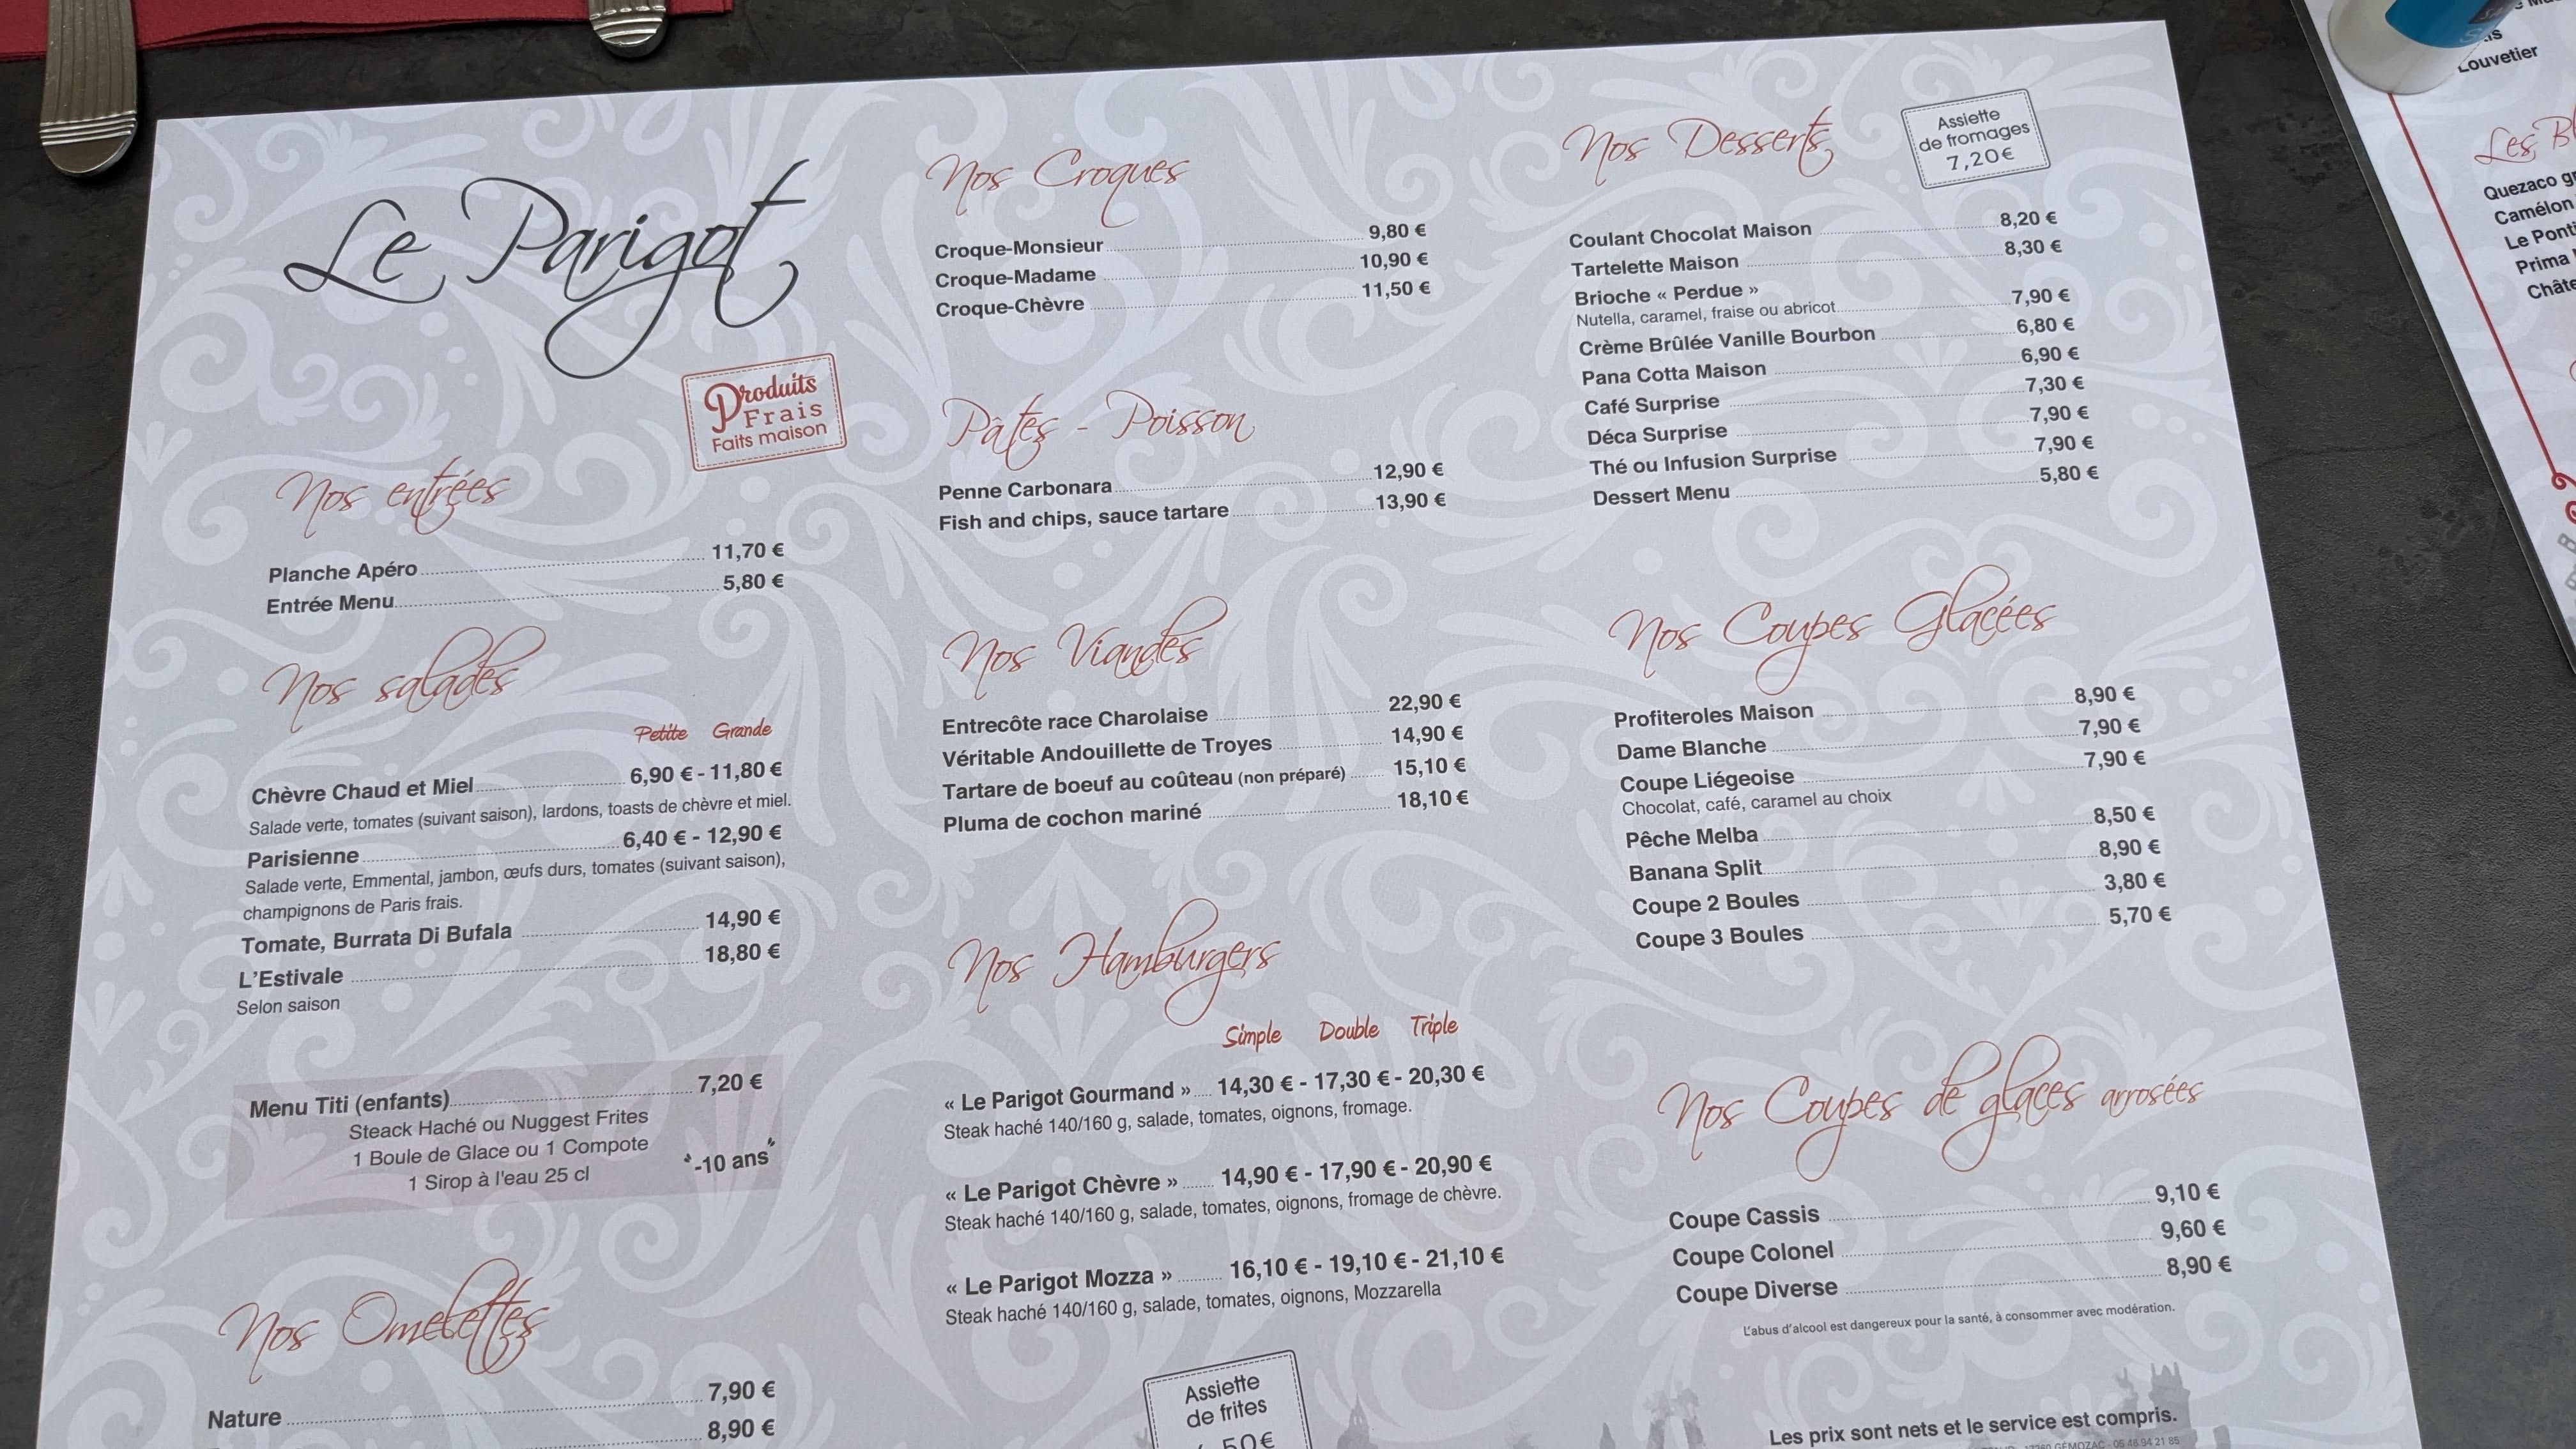 Le Parigot
Produits
Frais
Faits maison
Nos entrées
Planche Apéro 11,70 €
Entrée Menu 5,80 €
Nos salades
Petite Grande
Chèvre Chaud et Miel 6,90 € - 11,80 €
Salade verte, tomates (suivant saison), lardons, toasts de chèvre et miel.
Parisienne 6,40 € - 12,90 €
Salade verte, Emmental, jambon, œufs durs, tomates (suivant saison),
champignons de Paris frais.
Tomate, Burrata Di Bufala 14,90 €
L'Estivale 18,80 €
Selon saison
Menu Titi (enfants) 7,20 €
Steack Haché ou Nuggest Frites
1 Boule de Glace ou 1 Compote
1 Sirop à l'eau 25 cl
"-10 ans"
Nos Omelettes
Nature 7,90 €
8,90 €
Nos Croques
Croque-Monsieur 9,80 €
Croque-Madame 10,90 €
Croque-Chèvre 11,50 €
Pâtes - Poisson
Penne Carbonara 12,90 €
Fish and chips, sauce tartare 13,90 €
Nos Viandes
Entrecôte race Charolaise 22,90 €
Véritable Andouillette de Troyes 14,90 €
Tartare de boeuf au coûteau (non préparé) 15,10 €
Pluma de cochon mariné 18,10 €
Nos Hamburgers
Simple Double Triple
« Le Parigot Gourmand » 14,30 € - 17,30 € - 20,30 €
Steak haché 140/160 g, salade, tomates, oignons, fromage.
« Le Parigot Chèvre » 14,90 € - 17,90 € - 20,90 €
Steak haché 140/160 g, salade, tomates, oignons, fromage de chèvre.
« Le Parigot Mozza » 16,10 € - 19,10 € - 21,10 €
Steak haché 140/160 g, salade, tomates, oignons, Mozzarella
Assiette
de frites
50€
Nos Desserts
Assiette
de fromages
7,20€
Coulant Chocolat Maison 8,20 €
Tartelette Maison 8,30 €
Brioche « Perdue »
Nutella, caramel, fraise ou abricot 7,90 €
Crème Brûlée Vanille Bourbon 6,80 €
Pana Cotta Maison 6,90 €
Café Surprise 7,30 €
Déca Surprise 7,90 €
Thé ou Infusion Surprise 7,90 €
Dessert Menu 5,80 €
Nos Coupes Glacées
Profiteroles Maison 8,90 €
Dame Blanche 7,90 €
Coupe Liégeoise 7,90 €
Chocolat, café, caramel au choix
Pêche Melba 8,50 €
Banana Split 8,90 €
Coupe 2 Boules 3,80 €
Coupe 3 Boules 5,70 €
Nos Coupes de glaces arrosées
Coupe Cassis 9,10 €
Coupe Colonel 9,60 €
Coupe Diverse 8,90 €
L'abus d'alcool est dangereux pour la santé, à consommer avec modération.
Les prix sont nets et le service est compris.
GÉMOZAC - 05 46 94 21 85
Louvetier
Les
Quezaco
Camélon
Le
Prima